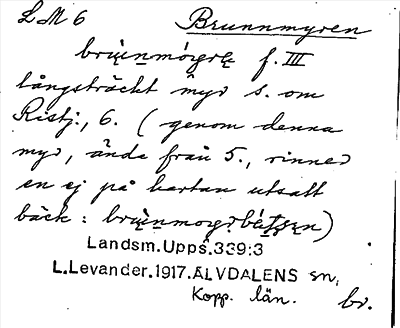 LM 6 Brunnmyren
f. III
långsträckt myr s. om
Ristj., 6. (genom denna
myr, ända från 5., rinner
en ej på kartan utsatt
bäck:
Landsm.Upps.339:3
L.Levander.1917.ÄLVDALENS sn,
Kopp. län. br.